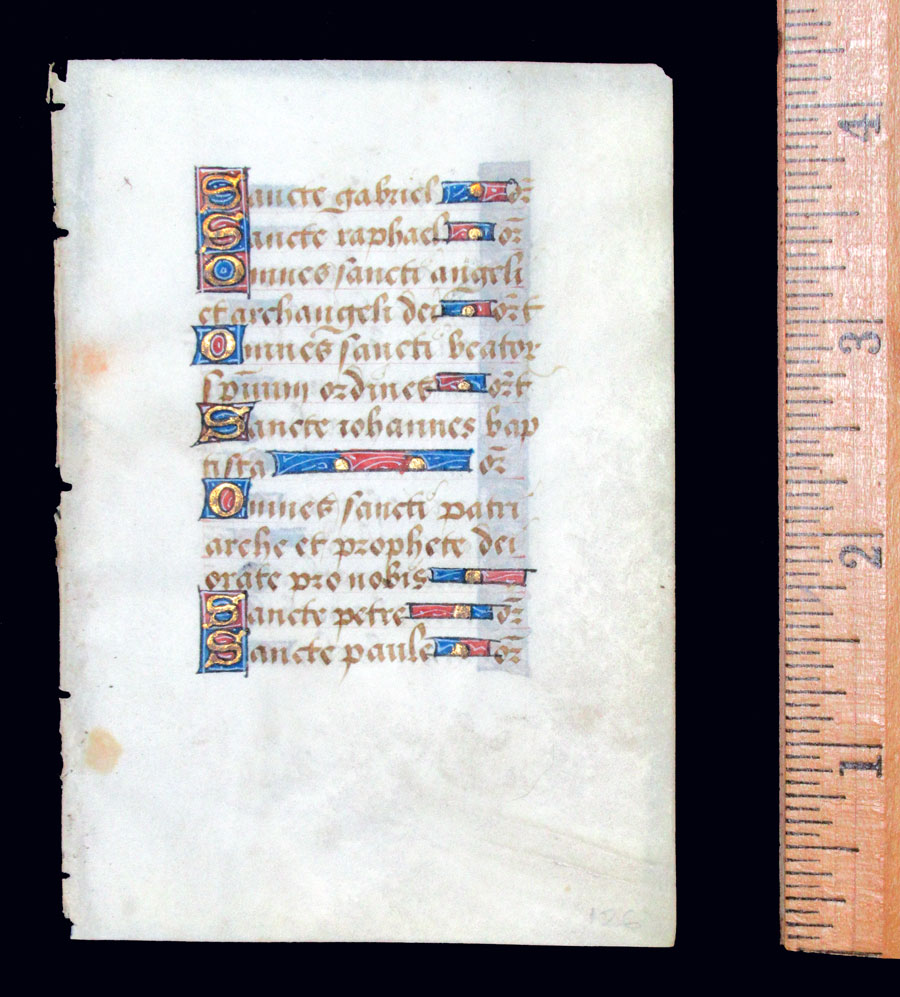 Sancte gabriel or̄
Sancte raphael or̄
Omnes sancti angeli
et archangeli dei or̄t
Omnes sancti beator
sp̄uum ordines or̄t
Sancte iohannes bap
tista or̄
Omnes sancti patri
arche et prophete dei
orate pro nobis
Sancte petre or̄
Sancte paule or̄
126
4
3
2
1